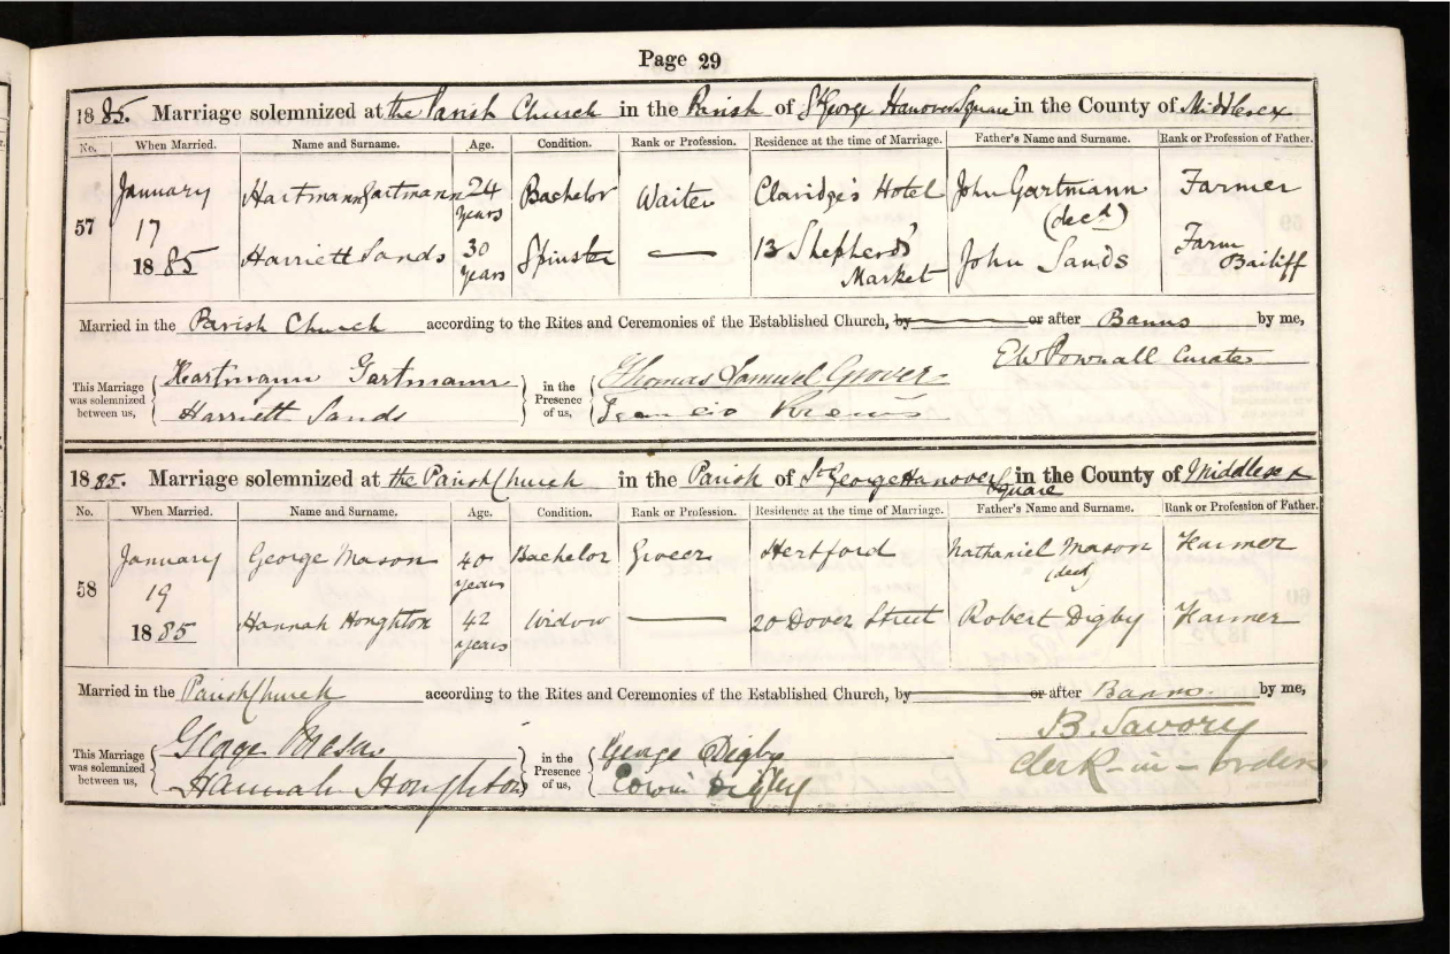 Page 29
1885. Marriage solemnized at the Parish Church in the Parish of St George Hanover Square in the County of Middlesex
No. When Married. Name and Surname. Age. Condition. Rank or Profession. Residence at the time of Marriage. Father's Name and Surname. Rank or Profession of Father.
57 January 17 1885 Hartmann Gartmann 24 years Bachelor Waiter Claridge's Hotel John Gartmann (decd) Farmer
Harriett Sands 30 years Spinster — 13 Shepherds' Market John Sands Farm Bailiff
Married in the Parish Church according to the Rites and Ceremonies of the Established Church, by or after Banns by me,
E W Pownall Curate
This Marriage was solemnized between us, Hartmann Gartmann
Harriett Sands
in the Presence of us, Thomas Samuel Grover
1885. Marriage solemnized at the Parish Church in the Parish of St George Hanover Square in the County of Middlesex
No. When Married. Name and Surname. Age. Condition. Rank or Profession. Residence at the time of Marriage. Father's Name and Surname. Rank or Profession of Father.
58 January 19 1885 George Mason 40 years Bachelor Grocer Hertford Nathaniel Mason (decd) Farmer
Hannah Houghton 42 years Widow — 20 Dover Street Robert Digby Farmer
Married in the Parish Church according to the Rites and Ceremonies of the Established Church, by or after Banns. by me,
B. Savory
clerk-in-orders
This Marriage was solemnized between us, George Mason
Hannah Houghton
in the Presence of us, George Digby
Edwin Digby